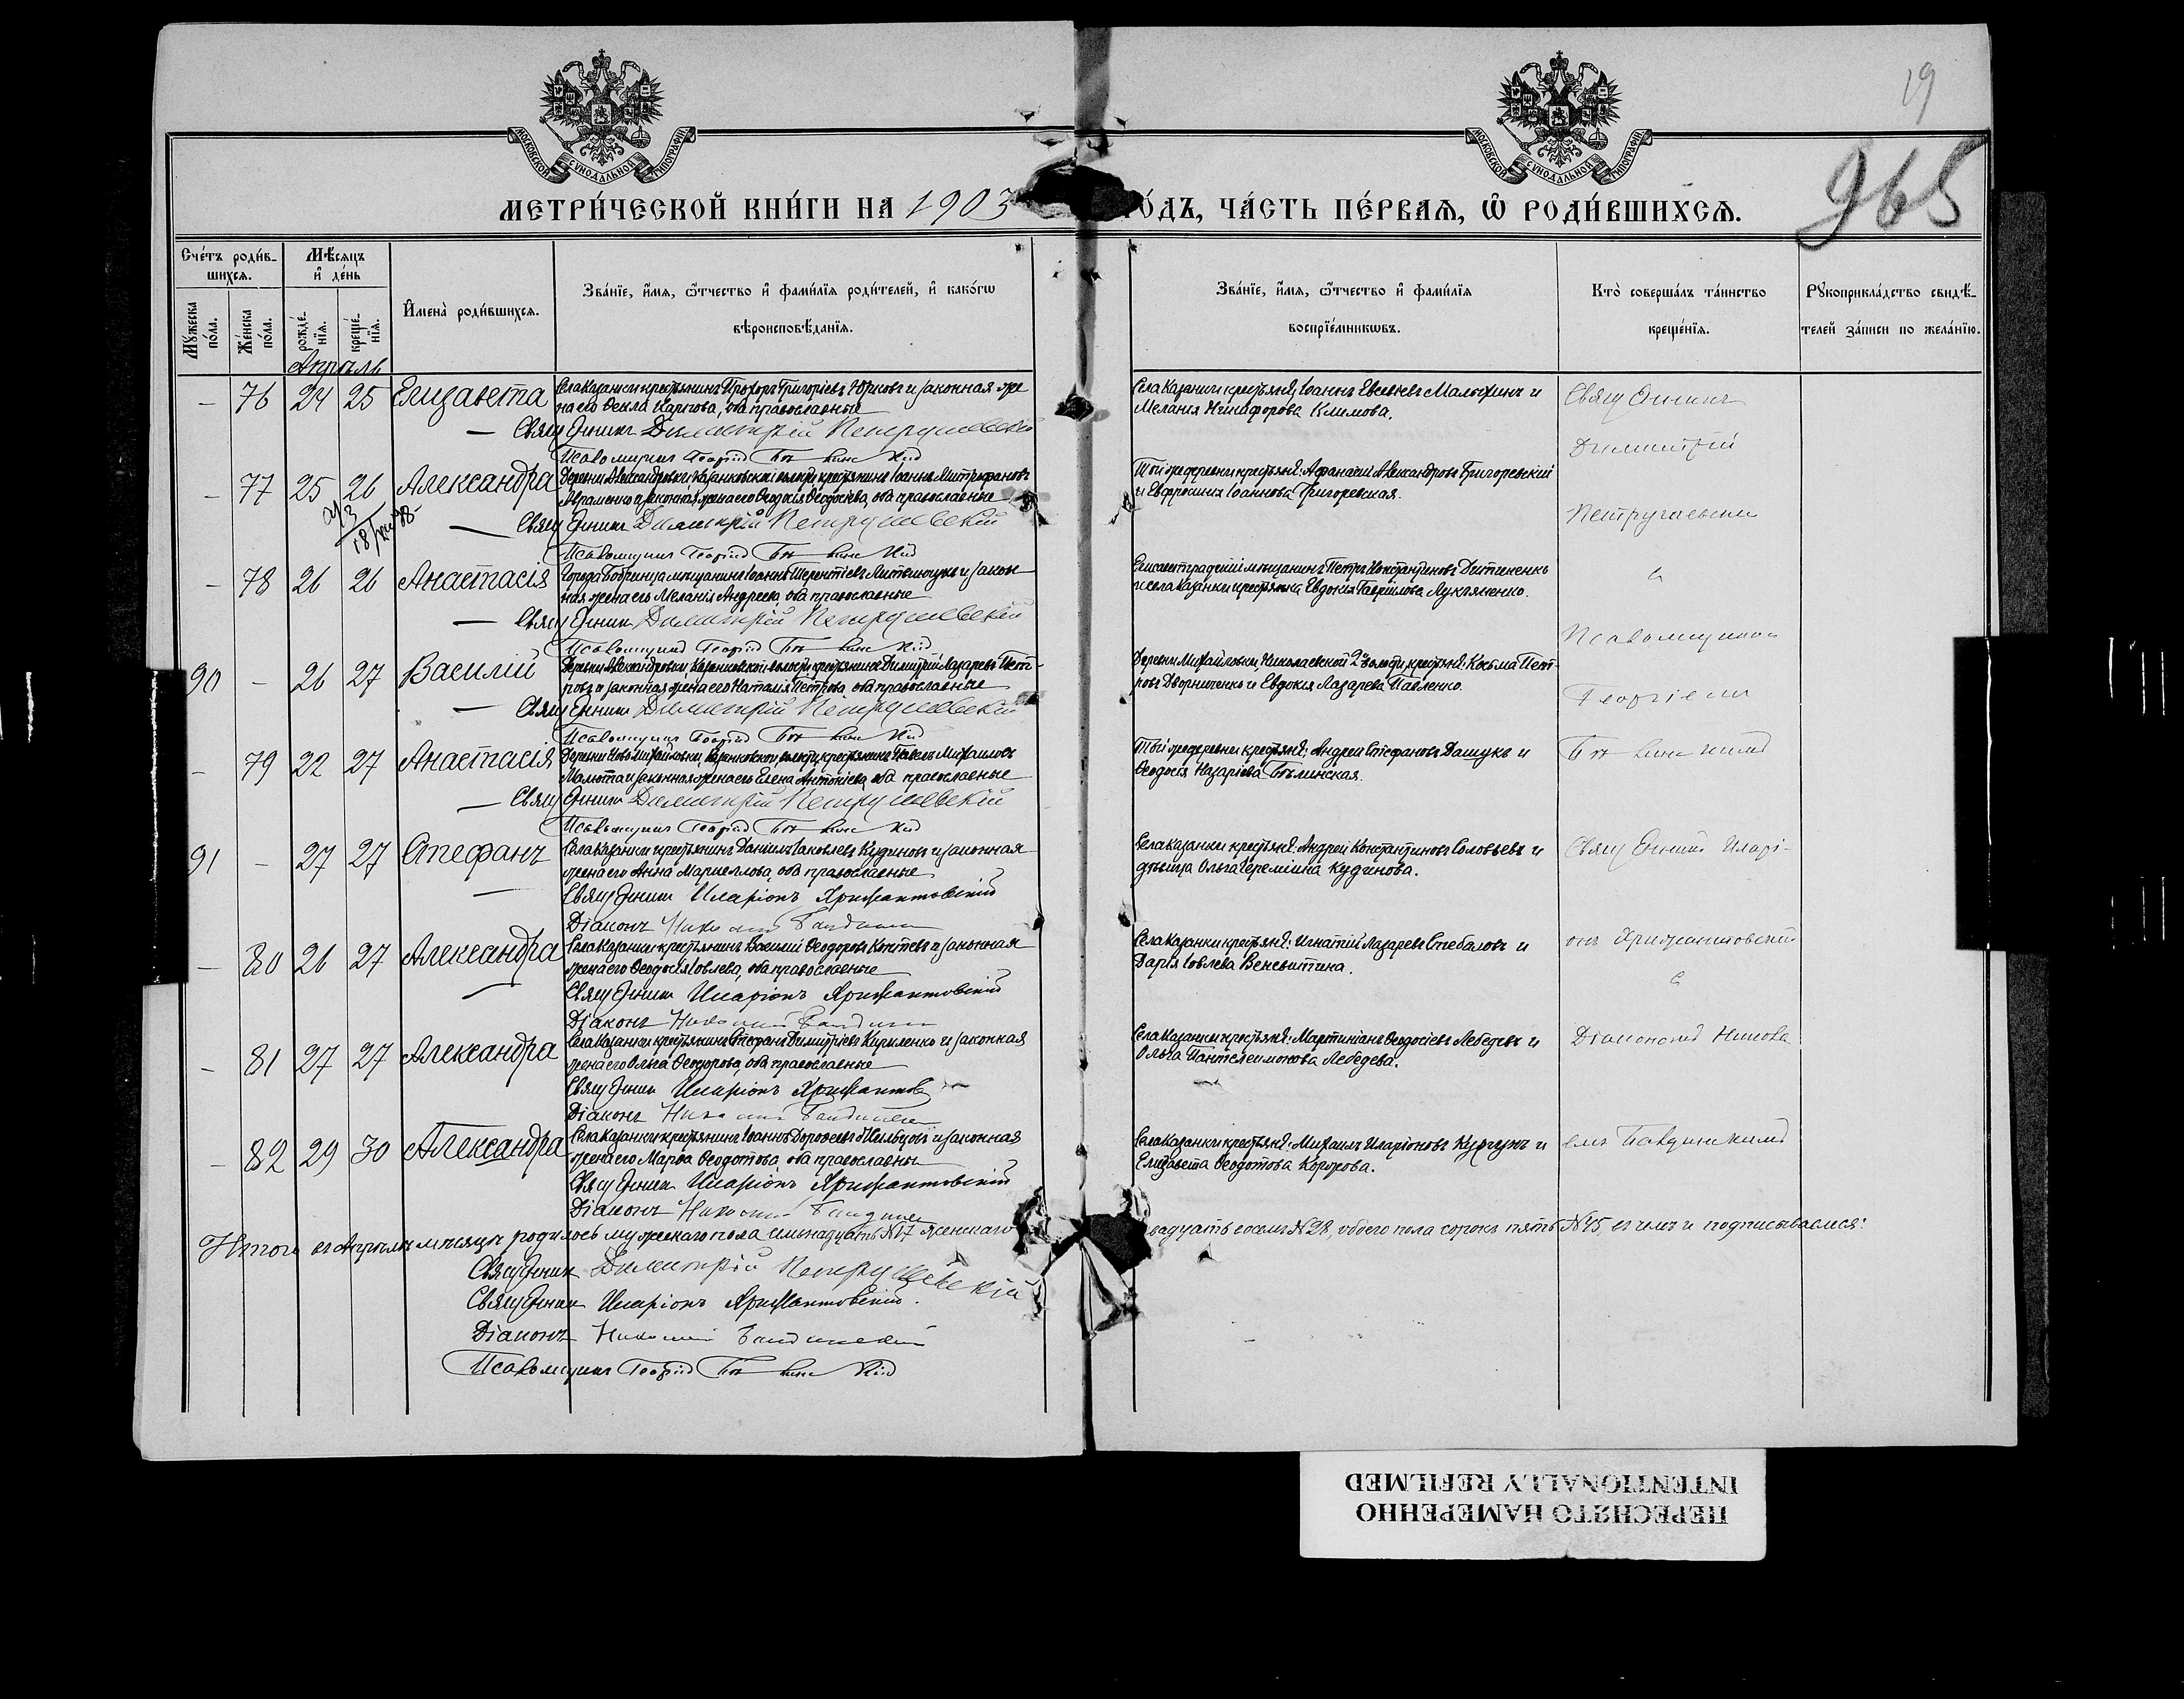 19
965
МОСКОВСКОЙ СУНОДАЛЬНОЙ ТИПОГРАФІИ
МОСКОВСКОЙ СУНОДАЛЬНОЙ ТИПОГРАФІИ
МЕТРИ́ЧЕСКОЙ КНИ́ГИ НА 1903 ГО́ДЪ, ЧА́СТЬ ПЕ́РВАѦ, Ѿ РОДИ́ВШИХСѦ.
Сче́тъ роди́в-
шихсѧ.
Мѣ́сѧцъ
и҆ де́нь
Мꙋ́жеска по́ла.
Же́нска по́ла.
рожде́-
нїѧ.
креще́-
нїѧ.
И҆мена̀ роди́вшихсѧ.
Зва́нїе, и҆́мѧ, ѻ҆́тчество и҆ фами́лїѧ роди́телей, и҆ како́гѡ
вѣроисповѣ́данїѧ.
Зва́нїе, и҆́мѧ, ѻ҆́тчество и҆ фами́лїѧ
воспрїе́мникѡвъ.
Кто̀ соверша́лъ та́инство
креще́нїѧ.
Рꙋкоприкла́дство свидѣ́-
телей за́писи по жела́нїю.
Апрѣль
- 76 24 25 Елизавета Села Казанки крестьянинъ Прохоръ Григоріевъ Юрковъ и законная же
на его Ѳекла Карпова, оба православные
Священникъ Димитрій Петрушевскій
Псаломщикъ Георгій
Села Казанки крестьяне: Іоаннъ Евсевіевъ Малыхинъ и
Меланія Никифорова Климова.
Священникъ
Димитрій
- 77 25 26 Александра Деревни Александровки Казанковской волости крестьянинъ Іоаннъ Митрофановъ
Авраменко и законная жена его Ѳеодосія Ѳеодосіева, оба православные
Священникъ Димитрій Петрушевскій
Псаломщикъ Георгій
Той же деревни крестьяне: Аѳанасій Александровъ Григоревскій
и Евфросинія Іоаннова Григоревская.
Петрушевскій
- 78 26 26 Анастасія Города Бобринца мѣщанинъ Іоаннъ Терентіевъ Литвинчукъ и закон
ная жена его Меланія Андреева, оба православные
Священникъ Димитрій Петрушевскій
Псаломщикъ Георгій
Елисаветградскій мѣщанинъ Петръ Константиновъ Дитиненко
и села Казанки крестьянка Евдокія Гавріилова Лукьяненко.
с
Псаломщикомъ
90 - 26 27 Василій Деревни Александровки Казанковской волости крестьянинъ Димитрій Лазаревъ Пет-
ровъ и законная жена его Наталія Петрова, оба православные
Священникъ Димитрій Петрушевскій
Псаломщикъ Георгій
Деревни Михайловки, Николаевской 2й волости крестьяне: Косьма Пет-
ровъ Дворниченко и Евдокія Лазарева Павленко.
Георгіемъ
- 79 22 27 Анастасія Деревни Ново-Михайловки, Казанковской волости крестьянинъ Павелъ Михаиловъ
Малюта и законная жена его Елена Антоніева, оба православные
Священникъ Димитрій Петрушевскій
Псаломщикъ Георгій
Той же деревни крестьяне: Андрей Стефановъ Дашукъ и
Ѳеодосія Назаріева Бѣлинская.
91 - 27 27 Стефанъ Села Казанки крестьянинъ Даніилъ Іаковлевъ Кудиновъ и законная
жена его Анна Маркеллова, оба православные
Священникъ Иларіонъ Хрисанфовскій
Діаконъ
Села Казанки крестьяне: Андрей Константиновъ Соловьевъ и
дѣвица Ольга Іереміина Кудинова.
Священникъ Иларі-
- 80 26 27 Александра Села Казанки крестьянинъ Василій Ѳеодоровъ Коптевъ и законная
жена его Ѳеодосія Іовлева, оба православные
Священникъ Иларіонъ
Діаконъ
Села Казанки крестьяне: Игнатій Лазаревъ Стебаловъ и
Дарія Іовлева Веневитина.
онъ
с
- 81 27 27 Александра Села Казанки крестьянинъ Стефанъ Димитріевъ Кириленко и законная
жена его Ольга Ѳеодорова, оба православные
Священникъ Иларіонъ
Діаконъ
Села Казанки крестьяне: Мартиніанъ Ѳеодосіевъ Лебедевъ и
Ольга Пантелеимонова Лебедева.
Діакономъ Никола
- 82 29 30 Александра Села Казанки крестьянинъ Іоаннъ Дороѳеевъ и законная
жена его Марѳа Ѳеодотова, оба православны
Священникъ Иларіонъ
Діаконъ
Села Казанки крестьяне: Михаилъ Иларіоновъ Кургунъ и
Елизавета Ѳеодотова Коржова.
емъ
Итого въ Апрѣлѣ мѣсяцѣ родилось мужескаго пола семьнадцать №17 женскаго двадцать восемь №28, обоего пола сорокъ пять №45, въ чемъ и подписываемся:
Священникъ Димитрій Петрушевскій
Священникъ Иларіонъ
Діаконъ
Псаломщикъ Георгій
ПЕРЕСНЯТО НАМЕРЕННО
INTENTIONALLY REFILMED